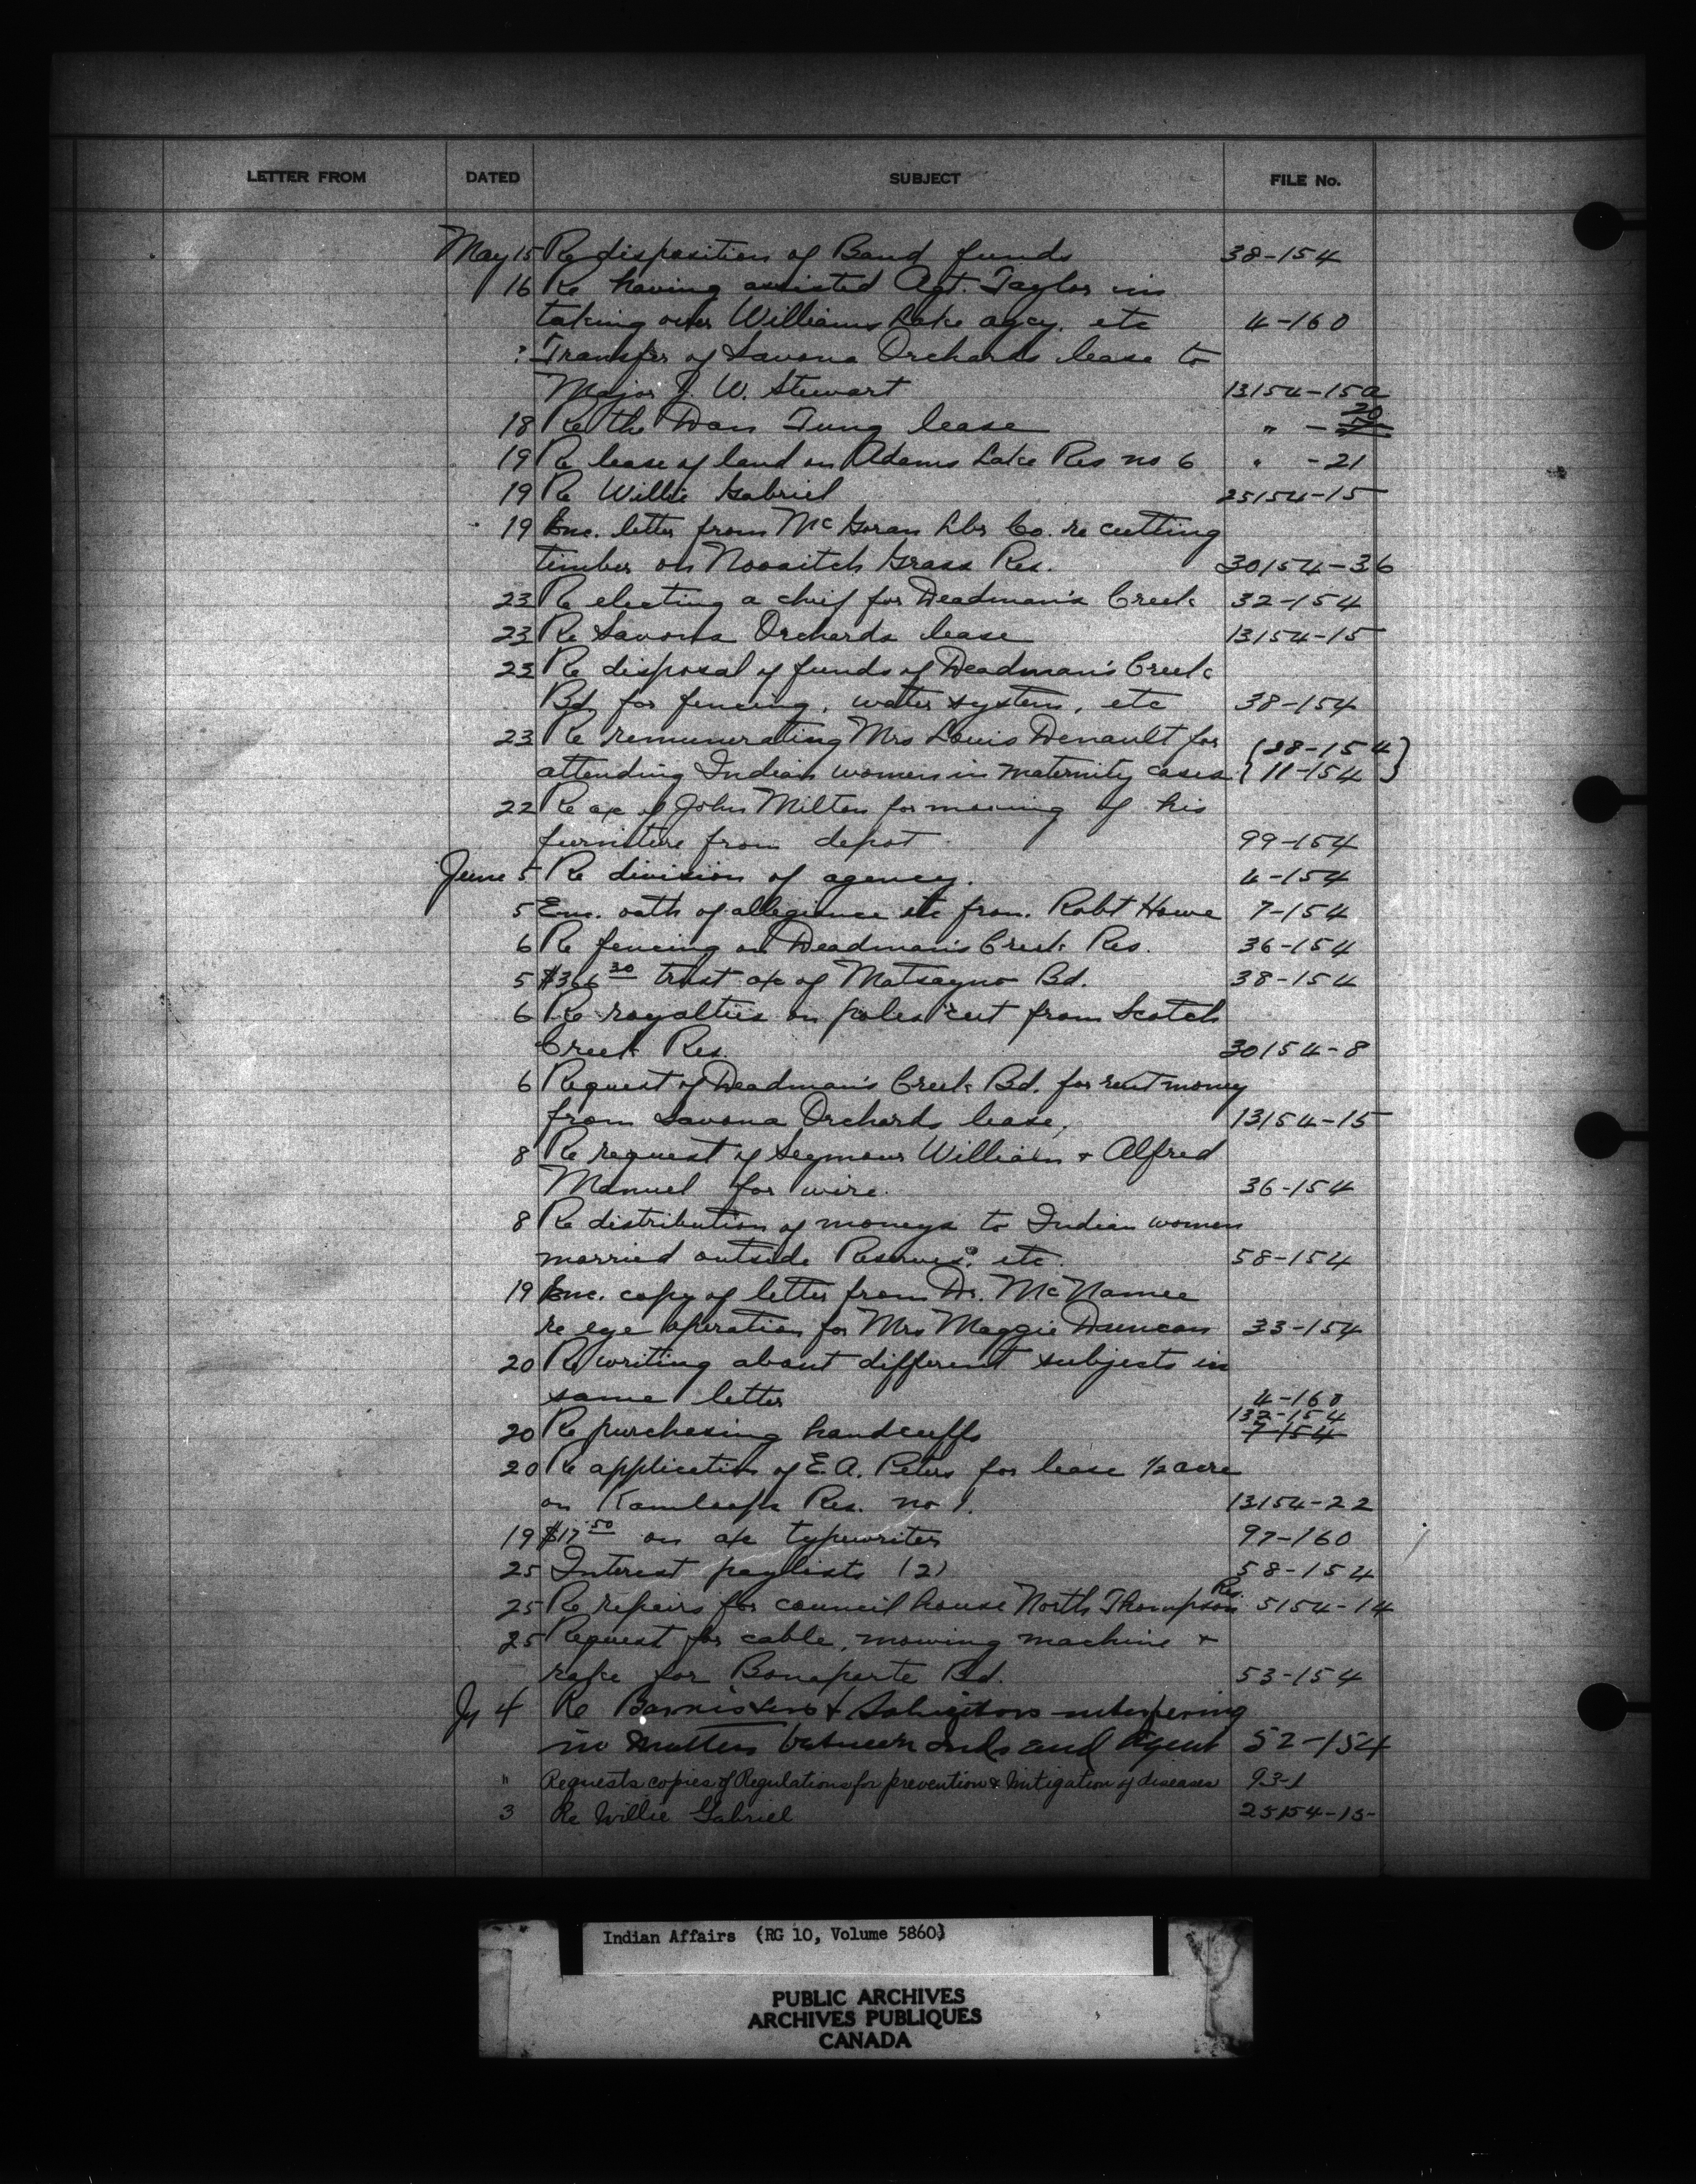 LETTER FROM DATED SUBJECT FILE No.
May 15 Re disposition of Band funds 38-154
16 Re having assisted Agt. Taylor in
taking over Williams Lake agcy. etc 4-160
Transfer of Savona Orchards lease to
Major J. W. Stewart 13154-15a
18 Re the Wan Tung lease " - 20
19 Re lease of land on Adams Lake Res no 6 " -21
19 Re Willie Gabriel 25154-15
19 Enc. letter from McGoran Lbr Co. re cutting
timber on Nooaitch Grass Res. 30154-36
23 Re electing a chief for Deadman's Creek 32-154
23 Re Savona Orchards lease 13154-15
23 Re disposal of funds of Deadman's Creek
Bd. for fencing, water system, etc 38-154
23 Re remunerating Mrs Louis Denault for (28-154)
attending Indian women in maternity cases (11-154)
22 Re a/c of John Milton for moving of his
furniture from depot 99-154
June 5 Re division of agency. 4-154
5 Enc. oath of allegiance etc from. Robt Howe 7-154
6 Re fencing on Deadman's Creek Res. 36-154
5 $366 30 trust a/c of Matsayno Bd. 38-154
6 Re royalties on poles cut from Scotch
Creek Res. 30154-8
6 Request of Deadman's Creek Bd. for rent money
from Savona Orchards lease, 13154-15
8 Re request of Seymour William & Alfred
Manuel for wire. 36-154
8 Re distribution of moneys to Indian women
married outside Reserves. etc. 58-154
19 Enc. copy of letter from Dr. McNamee
re eye operation for Mrs Maggie Duncan 33-154
20 Re writing about different subjects in
same letter 4-160
132-154
20 Re purchasing handcuffs 7-154
20 Re application of E. A. Peters for lease 1/2 acre
on Kamloops Res. no 1. 13154-22
19 $17 50 on a/c typewriter 97-160
25 Interest paylists (2) 58-154
25 Re repairs for council house North Thompson Res. 5154-14
25 Request for cable, mowing machine &
rake for Bonaparte Bd. 53-154
Jy 4 Re Barristers & Solicitors interfering
in matters between Inds and Agent 52-154
" Requests copies of Regulations for prevention & Mitigation of diseases 93-1
3 Re Willie Gabriel 25154-15-
Indian Affairs (RG 10, Volume 5860)
PUBLIC ARCHIVES
ARCHIVES PUBLIQUES
CANADA